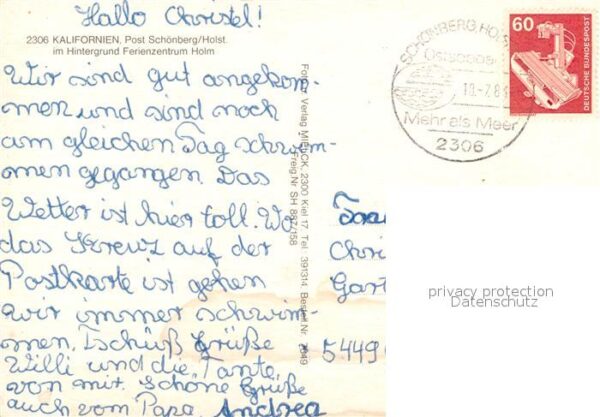 Hallo Christel!
2306 KALIFORNIEN, Post Schönberg/Holst.
im Hintergrund Ferienzentrum Holm
Wir sind gut angekom-
men und sind noch
am gleichen Tag schwim-
men gegangen. Das
Wetter ist hier toll. Wo
das Kreuz auf der
Postkarte ist gehen
wir immer schwim-
men. Tschüß Grüße
Willi und die Tante
von mir. Schöne Grüße
auch vom Papa. Andrea
Verlag MIELCK, 2300 Kiel 17, Tel. 391314 Bestell Nr.
Freig.Nr. SH 887/158
SCHÖNBERG, HOLST
Ostseebad
10.-7.8
Mehr als Meer
2306
60
DEUTSCHE BUNDESPOST
Frau
Chri
Gart
5449
privacy protection
Datenschutz